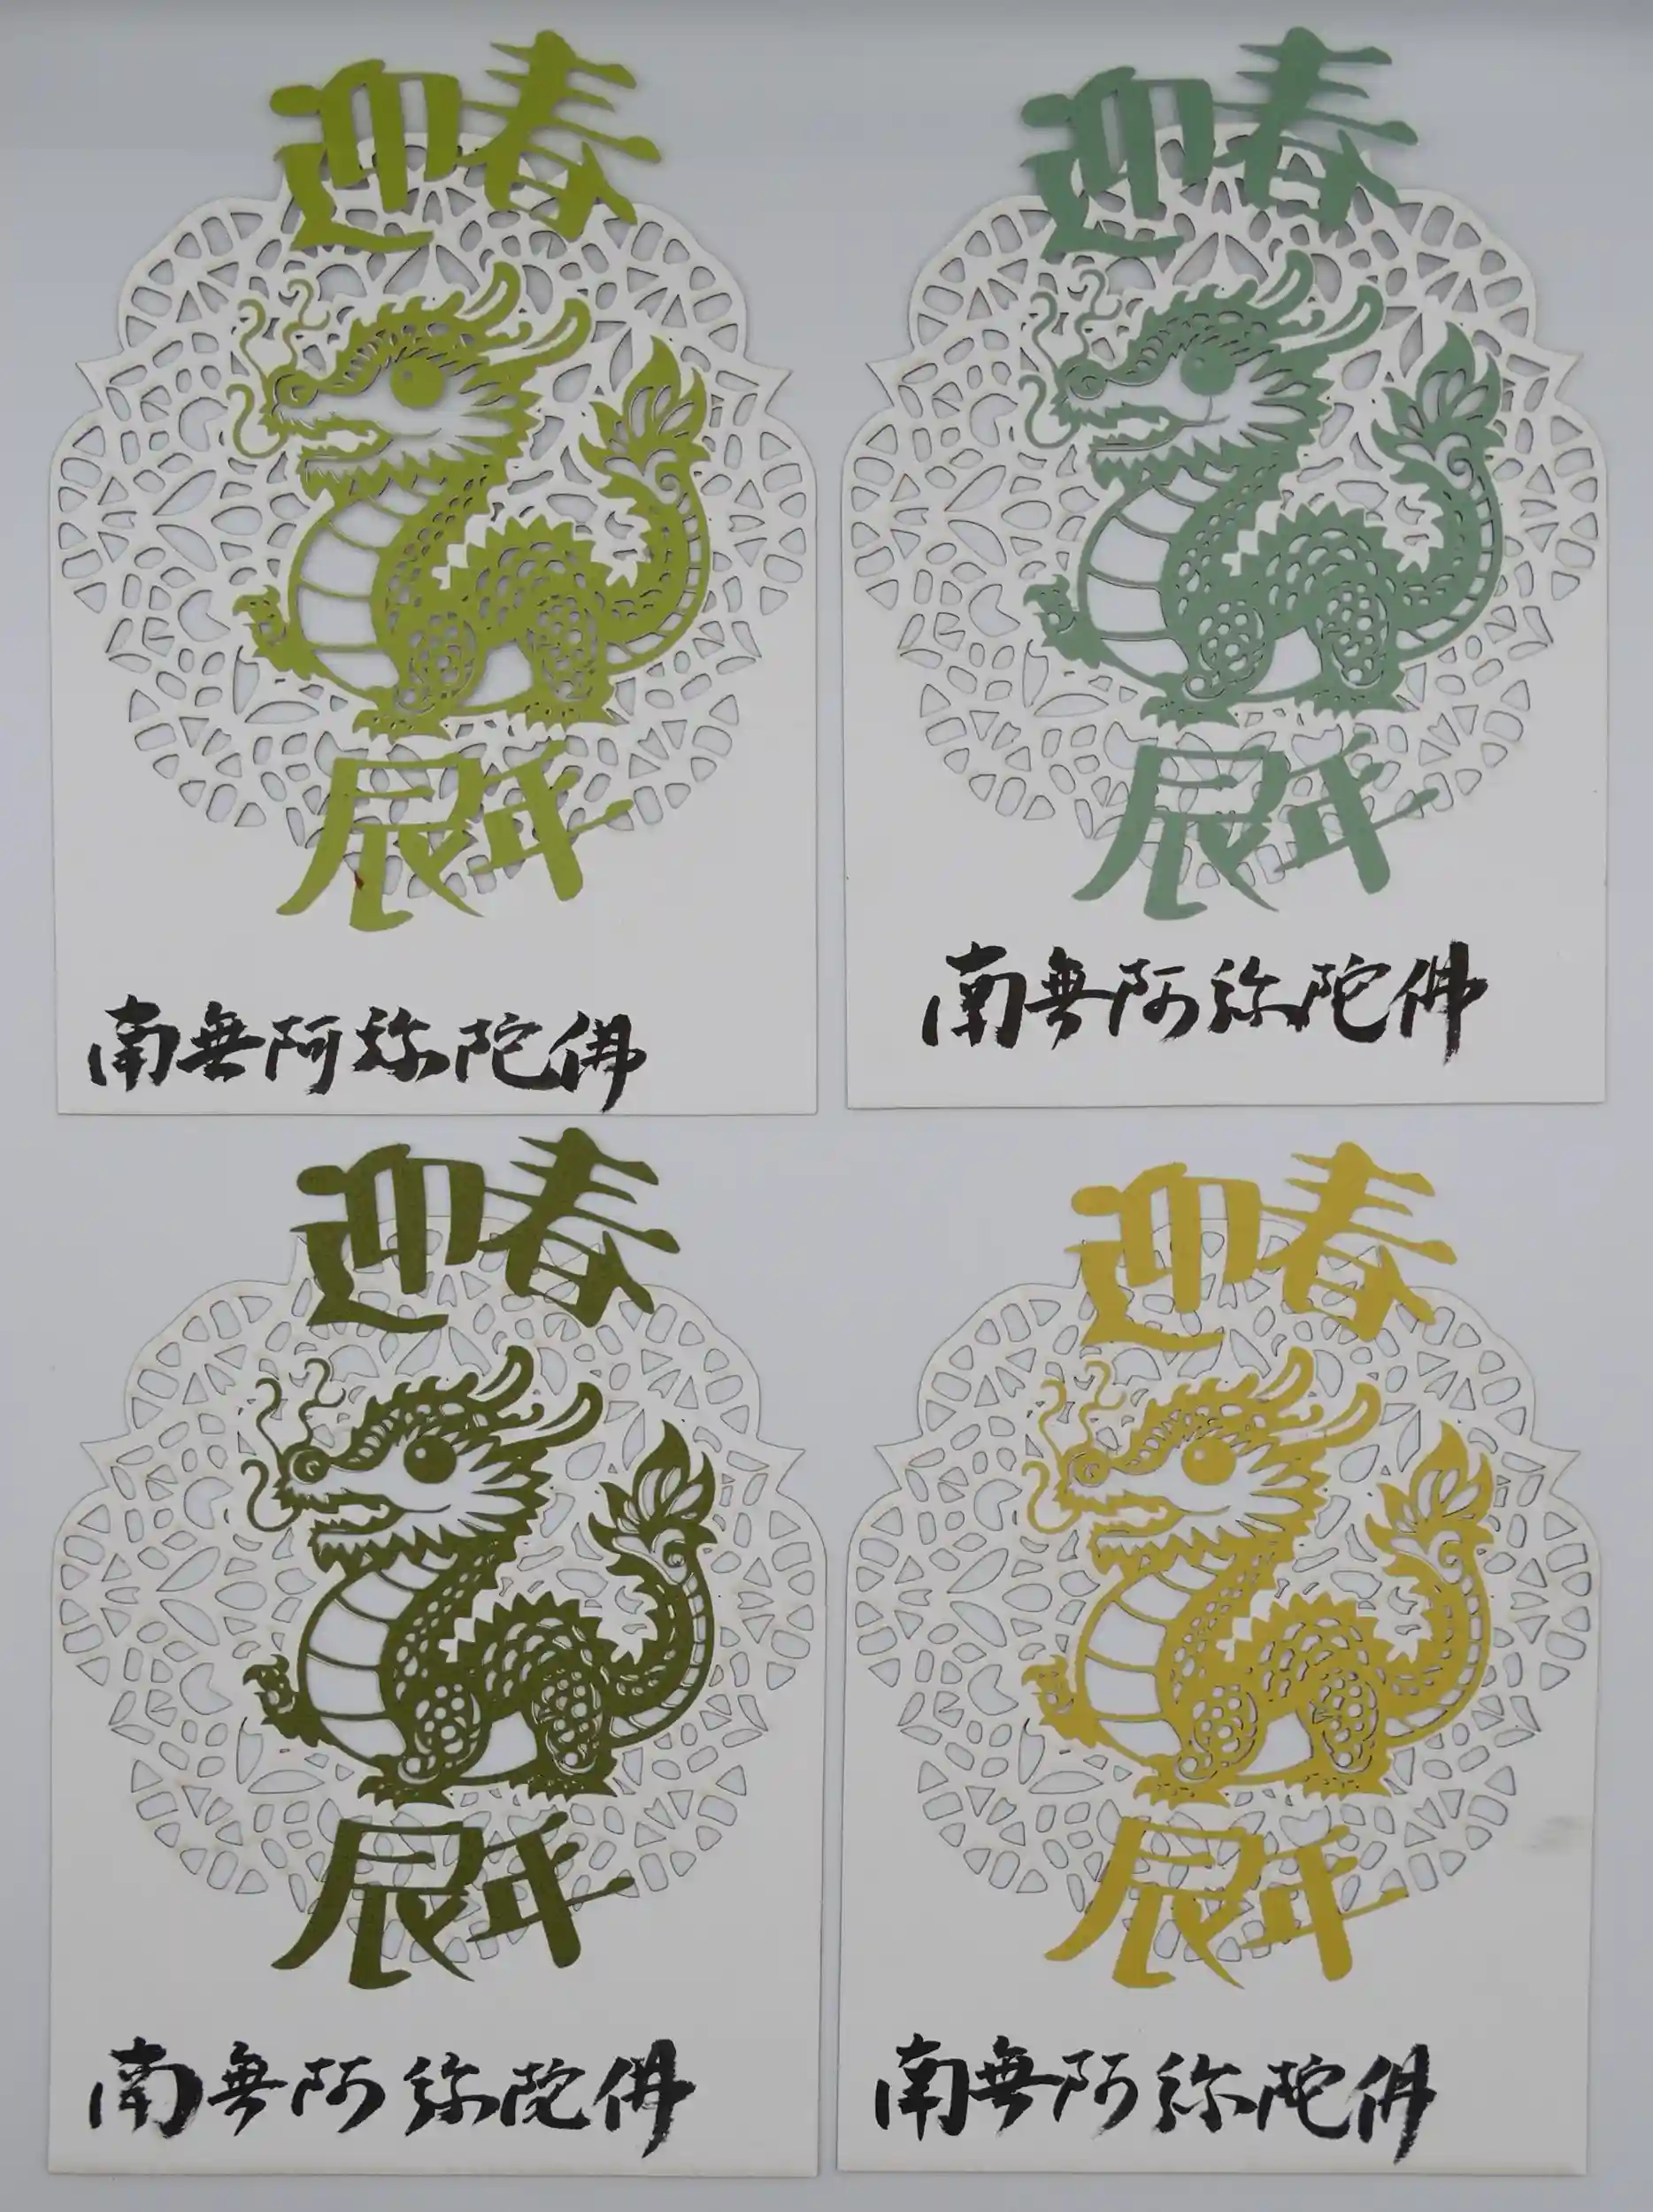 迎春
辰年
南無阿弥陀佛
迎春
辰年
南無阿弥陀佛
迎春
辰年
南無阿弥陀佛
迎春
辰年
南無阿弥陀佛